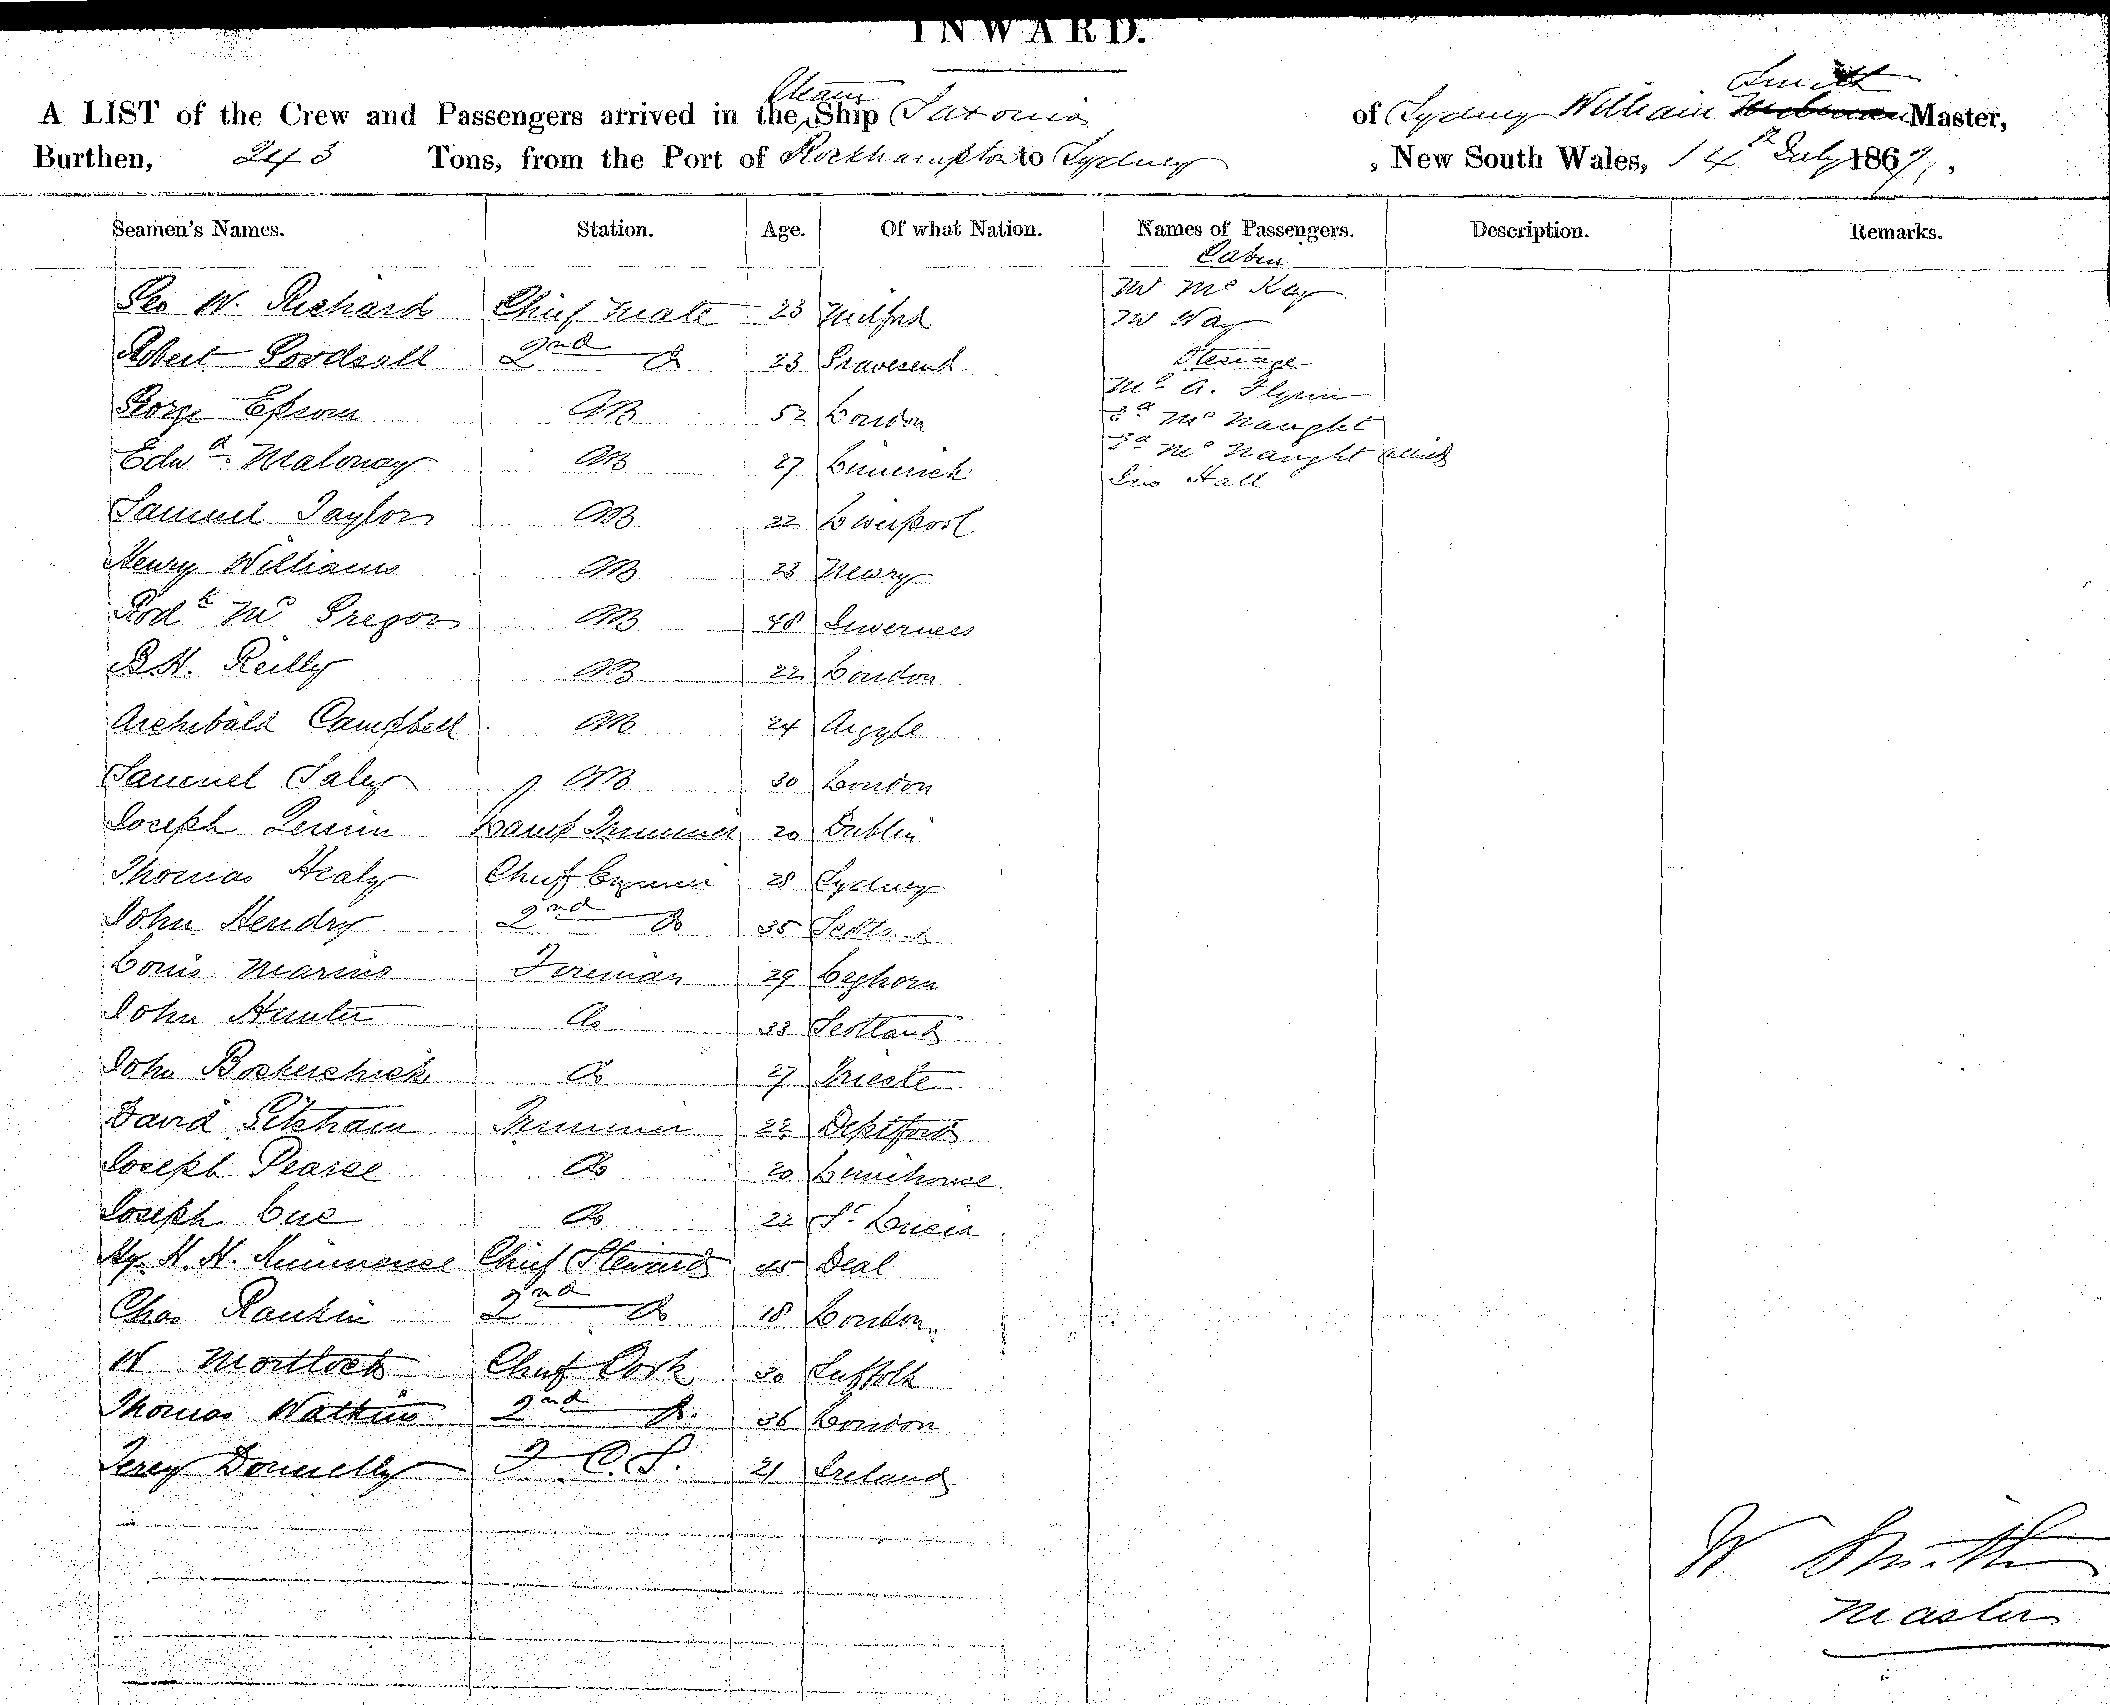 INWARD.
A LIST of the Crew and Passengers arrived in the Steam Ship Saxonia of Sydney William Smith Master,
Burthen, 243 Tons, from the Port of Rockhampton to Sydney , New South Wales, 14th July 1867.
Seamen's Names. Station. Age. Of what Nation. Names of Passengers. Description. Remarks.
Cabin
Geo W. Richard Chief Mate 23 Milford Mr Mc Kay
Mr Way
Robert Goodsall 2nd Do 23 Gravesend Steerage
George Epsom AB 52 London Mr A. Flynn
Do Mc Naught
Edwd Malonay AB 27 Limerick Do Mc Naught child
Geo Hall
Samuel Taylor AB 22 Liverpool
Henry Williams AB 23 Newry
Rodk Mc Gregor AB 48 Inverness
B H. Reilly AB 22 London
Archibald Campbell AB 24 Argyle
Samuel Saley AB 30 London
Joseph Lamp Trimmer 20 Dublin
Thomas Healy Chief Engineer 28 Sydney
John Hendry 2nd Do 35 Scotland
Louis Marius Fireman 29 Leghorn
John Hunter Do 33 Scotland
John Do 27 Trieste
David Trimmer 22 Deptford
Joseph Pearse Do 20 Limehouse
Joseph Cue Do 22 St Lucia
Hy H. H. Chief Steward 45 Deal
Chas Rankin 2nd Do 18 London
W Mortlock Chief Cook 30 Suffolk
Thomas Watkins 2nd Do 36 London
Terey Donnelly F. C. S. 21 Ireland
W Smith
Master